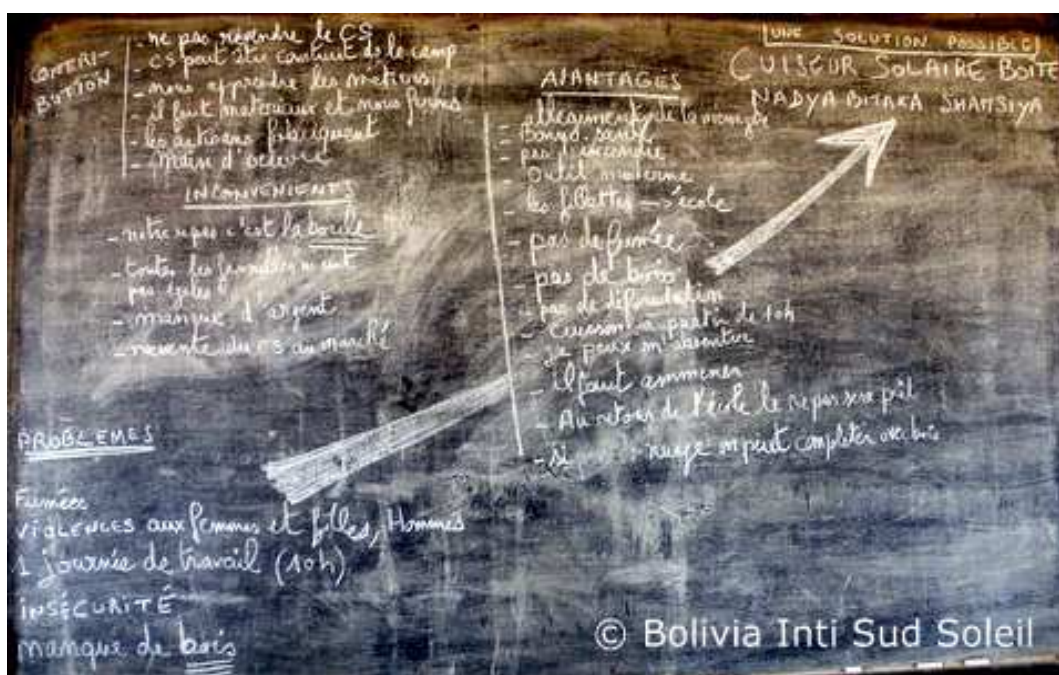 CONTRI-
BUTION
- ne pas revendre le CS
- CS peut être construit ds le camp
- nous apprendre les métiers
- il faut matériaux et nous formés
- les artisans fabriquent
- Main d'oeuvre
INCONVENIENTS
- notre repas c'est la boule
- toutes les familles
pas égales
- manque d'argent
- revente du CS au marché
PROBLEMES
Fumées
VIOLENCES aux femmes et filles, Hommes
1 journée de travail (10h)
INSÉCURITÉ
manque de bois
AVANTAGES
- de la
- santé
- pas d'incendie
- Outil moderne
- les fillettes → école
- pas de fumée
- pas de bois
- pas de
- Cuisson à partir de 10h
- je peux m'absenter
- il faut ammener
- Au retour de l'école le repas sera prêt
- Si nuage on peut completer avec bois
UNE SOLUTION POSSIBLE
CUISEUR SOLAIRE BOITE
NADYA BITAKA SHAMSIYA
© Bolivia Inti Sud Soleil